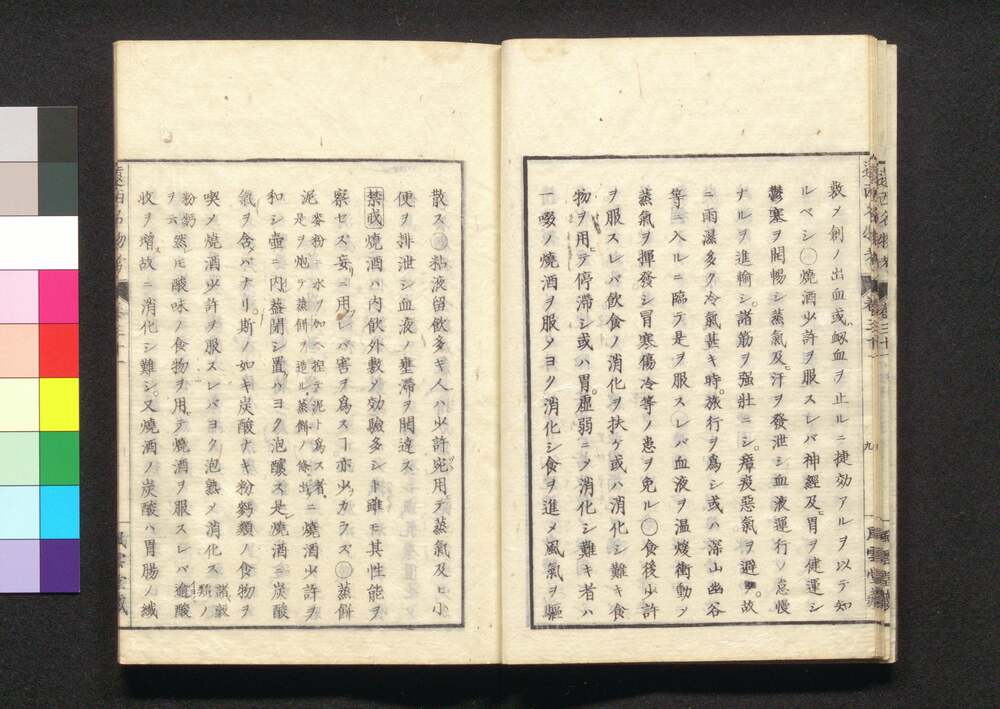 救メ創ノ出血或ハ衂血ヲ止ルニ捷効アルヲ以テ知
ルベシ○燒酒少許ヲ服スレバ神經及ヒ胃ヲ健運シ
鬱塞ヲ開暢シ蒸氣及ヒ汗ヲ發泄シ血液運行ノ怠慢
ナルヲ進輸シ諸筋ヲ强壯ニシ瘴疫惡氣ヲ避ク故
ニ雨濕多ク冷氣甚キ時旅行ヲ爲シ或ハ深山幽谷
等ニ入ルニ臨テ是ヲ服スレバ血液ヲ温煖衝動シ
蒸氣ヲ揮發シ冒寒傷冷等ノ患ヲ免ル○食後少許
ヲ服スレバ飲食ノ消化ヲ扶ケ或ハ消化シ難キ食
物ヲ用テ停滯シ或ハ胃虛弱ニメ消化シ難キ者ハ
一啜ノ燒酒ヲ服メヨク消化シ食ヲ進メ風氣ヲ驅
散ス○粘液留飲多キ人ハ少許宛用テ蒸氣及ヒ小
便ヲ排泄シ血液ノ壅滯ヲ開達ス
禁戒 燒酒ハ内飲外敷ノ効驗多シト雖モ其性能ヲ
察セズ妄ニ用レバ害ヲ爲スヿ亦少カラズ○蒸餅
泥 麥粉ニ水ヲ加ヘ捏テ泥ト爲ス者
是ヲ炮テ蒸餅ヲ造ル蒸餅ノ條ニ出 ニ燒酒少許ヲ
和シ壷ニ内蓋閉シ置ハヨク泡釀ス是燒酒ニ炭酸
氣ヲ含バナリ斯ノ如キ炭酸ナキ粉麪類ノ食物ヲ
喫メ燒酒少許ヲ服スレバヨク泡熟メ消化ス 諸穀
類ノ
粉麪
ヲ云 然ニ酸味ノ食物ヲ用テ燒酒ヲ服スレバ適酸
收ヲ增故ニ消化シ難シ又燒酒ノ炭酸ハ胃腸ノ纎
九